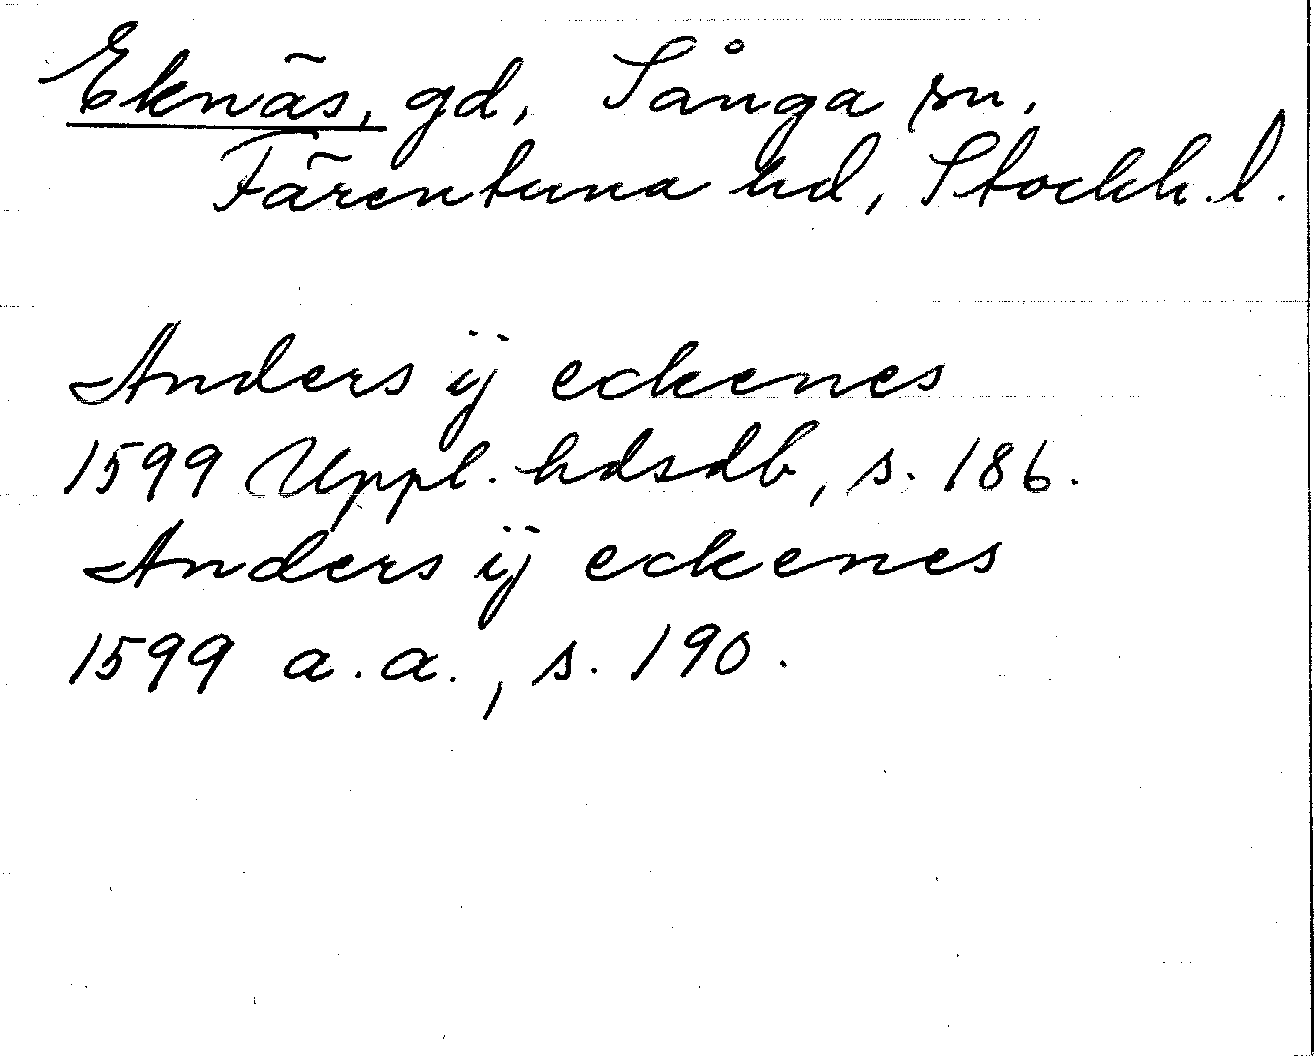 Eknäs, gd, Sånga sn,
Färentuna hd, Stockh. l.
Anders ij eckenes
1599 Uppl. hdsdb, s. 186.
Anders ij eckenes
1599 a.a., s. 190.